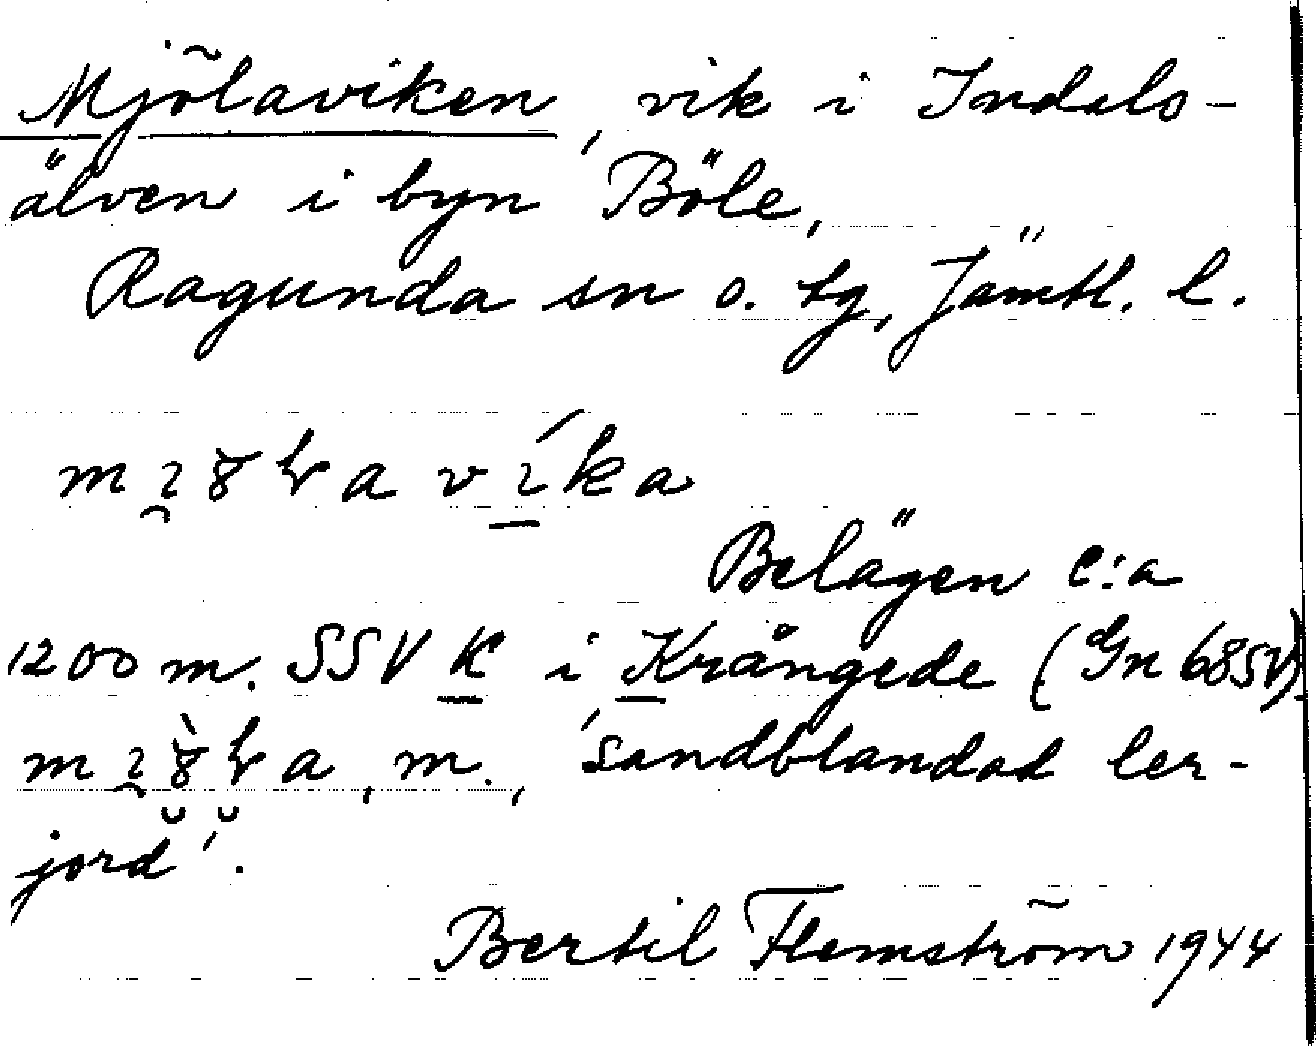 Mjölaviken, vik i Indals-
älven i byn Böle,
Ragunda sn o. tg, Jämtl. l.
Belägen c:a
1200 m. SSV K i Krångede (Gn 68SV).
m., 'sandblandad ler-
jord'.
Bertil Flemström 1944